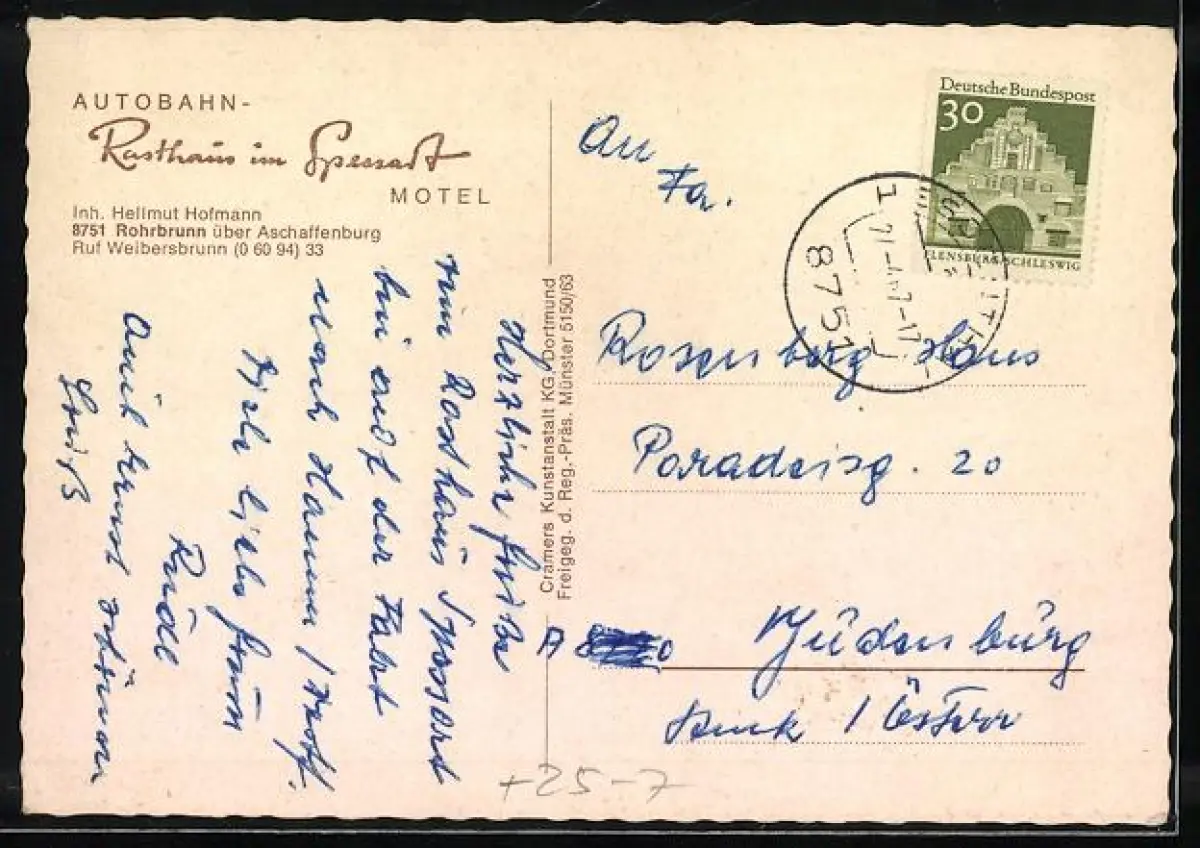 AUTOBAHN-
Rasthaus im Spessart
MOTEL
Inh. Hellmut Hofmann
8751 Rohrbrunn über Aschaffenburg
Ruf Weibersbrunn (0 60 94) 33
Herzliche Grüße
vom Rasthaus Spessard
bin auf der Fahrt
nach Hamm /
Viele liebe
Rudl
Auch schönen
Gruß
Cramers Kunstanstalt KG, Dortmund
Freigeg. d. Reg.-Präs. Münster 5150/63
Deutsche Bundespost
30
FLENSBURG/SCHLESWIG
1
8751
An
Fa.
Rosenberg Hans
Paradeisg. 20
A
Judenburg
/ Österr
+25-7